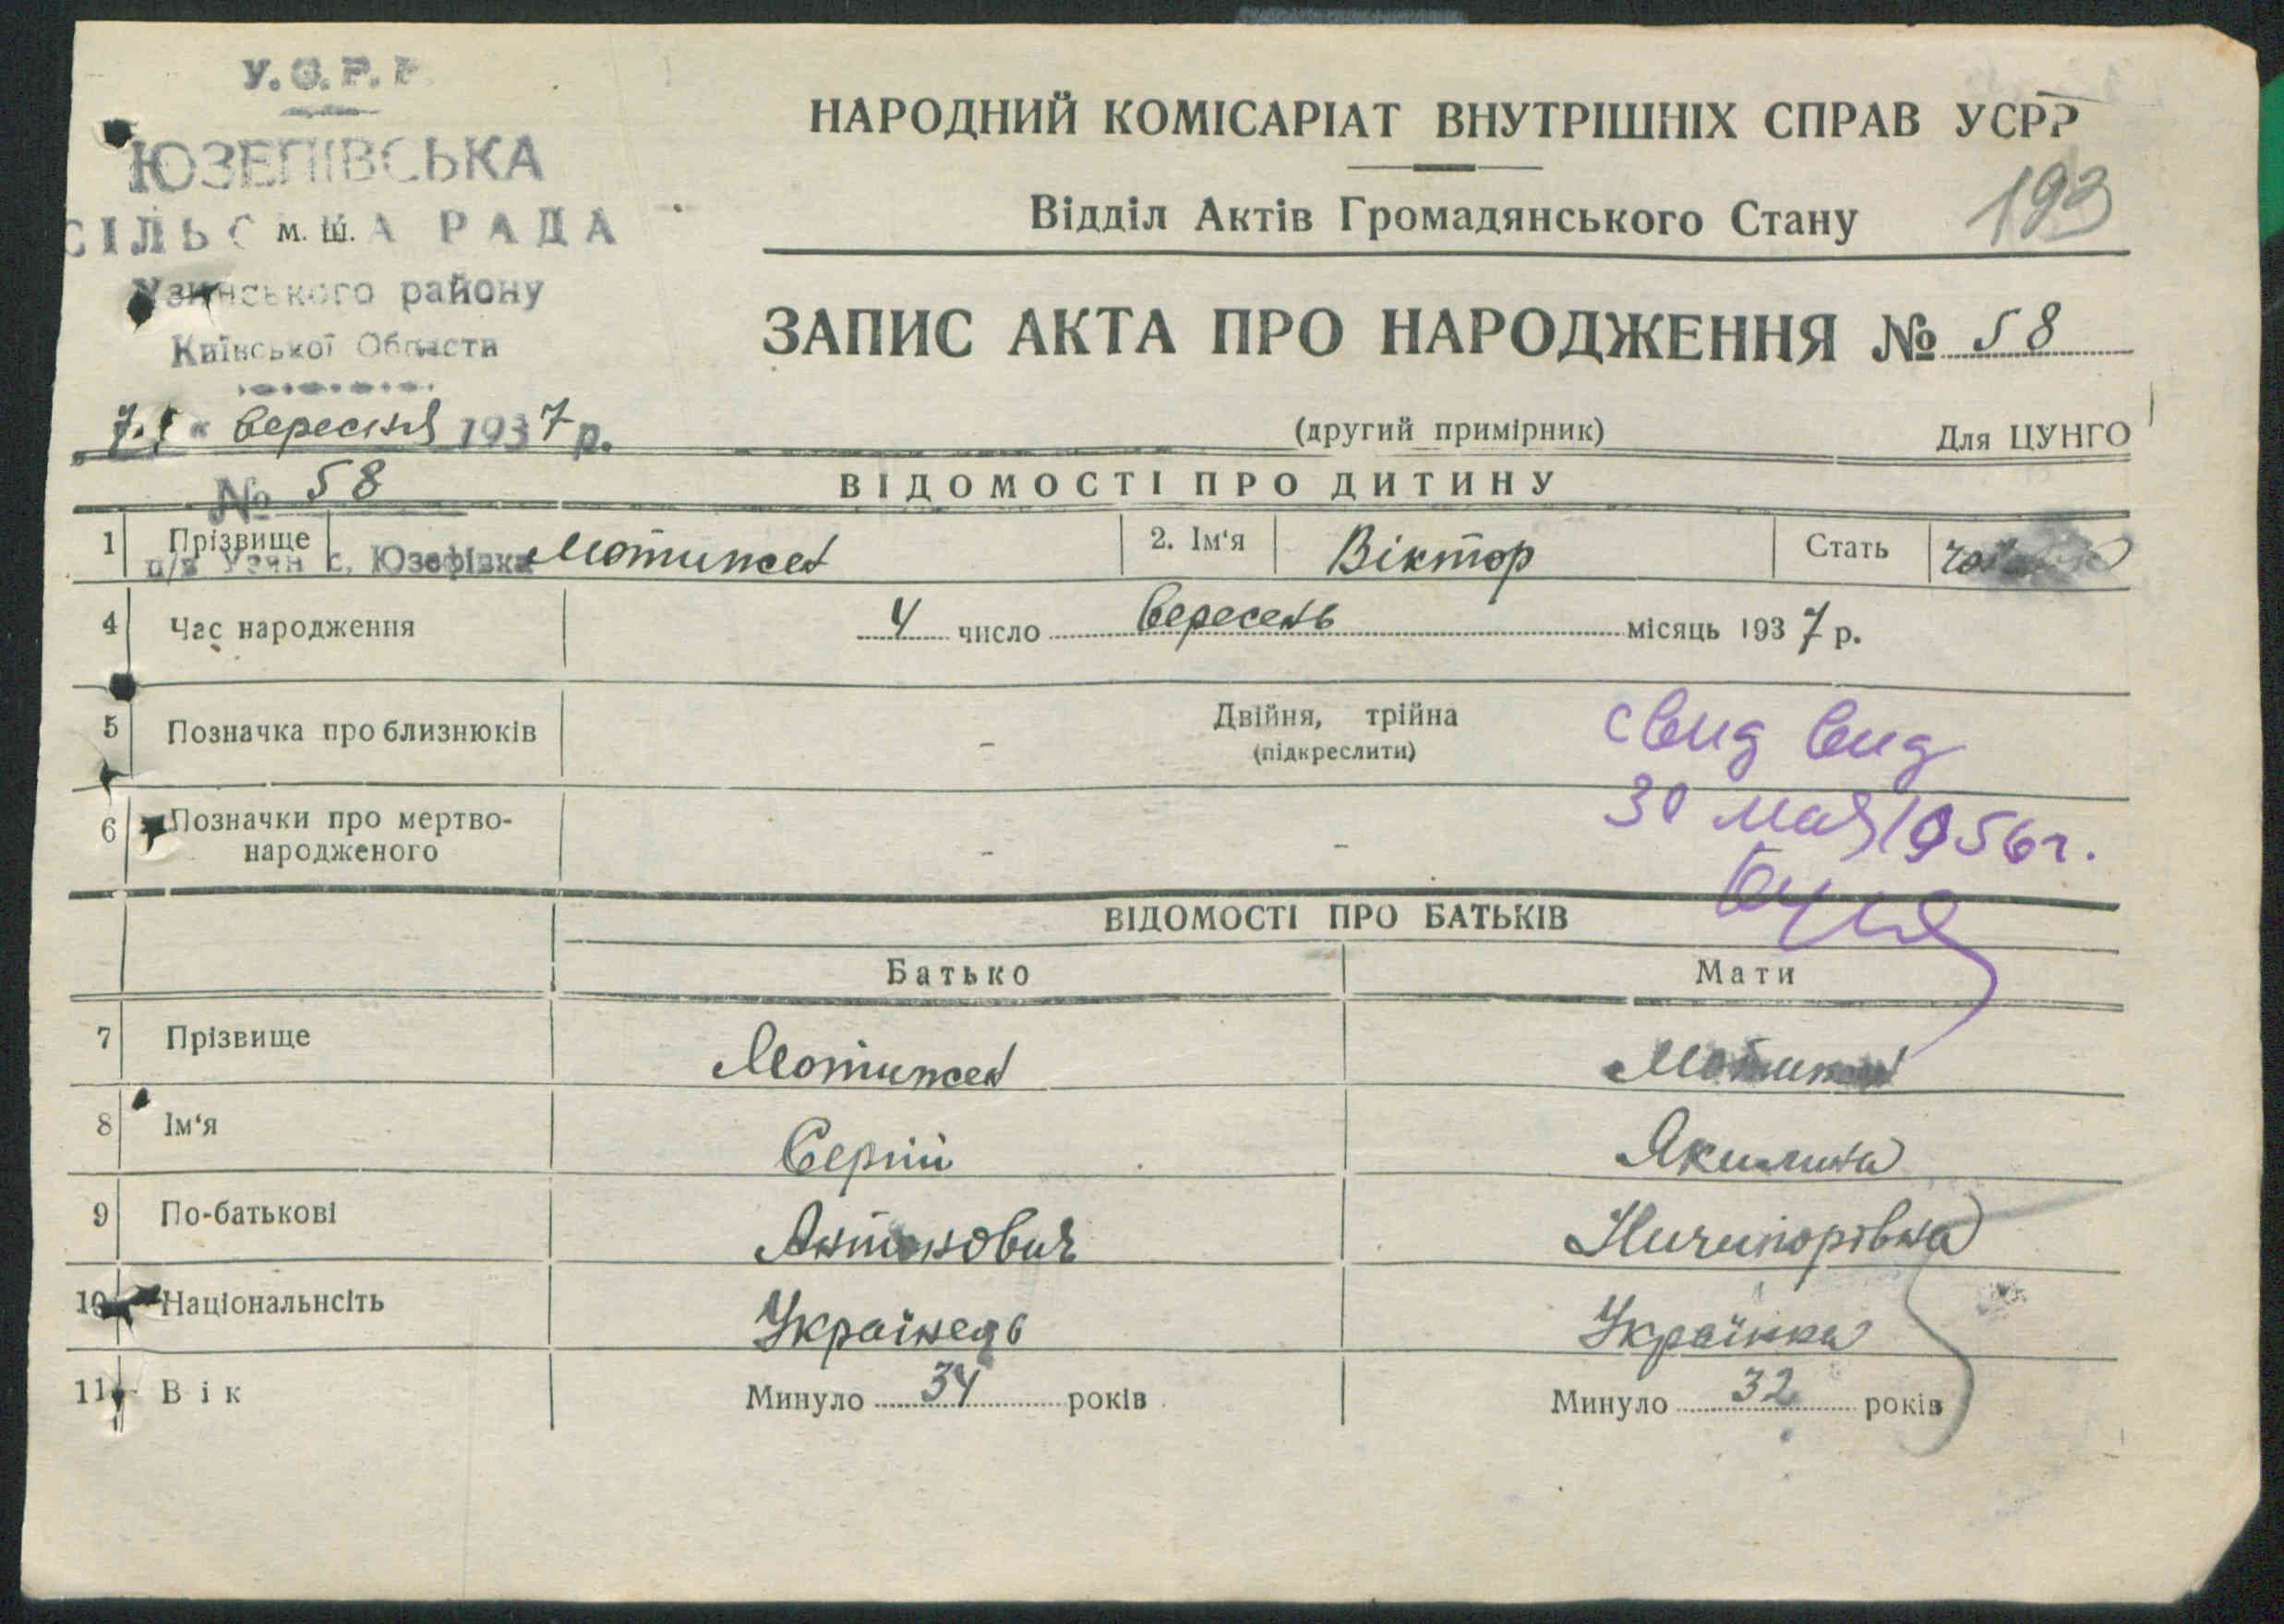 У.С.Р.Р.
ЮЗЕПІВСЬКА
СІЛЬСЬКА РАДА
м. ш.
Узинського району
Київської Области
7. " вересня 1937 р.
№ 58
п/в Узин с. Юзефівка
НАРОДНИЙ КОМІСАРІАТ ВНУТРІШНІХ СПРАВ УСРР
193
Відділ Актів Громадянського Стану
ЗАПИС АКТА ПРО НАРОДЖЕННЯ № 58
(другий примірник) Для ЦУНГО
ВІДОМОСТІ ПРО ДИТИНУ
1 Прізвище Мотижен 2. Ім‘я Віктор Стать
4 Час народження 4 число Вересень місяць 1937 р.
5 Позначка про близнюків - Двійня, трійна
(підкреслити)
свид вид
30 мая 1956 г.
6 Позначки про мертво-
народженого - -
ВІДОМОСТІ ПРО БАТЬКІВ
Батько Мати
7 Прізвище Мотижен Мотижен
8 Ім‘я Сергій Якилина
9 По-батькові Антонович Ничипорівна
10 Національнсіть Українець Українка
11 Вік Минуло 34 років Минуло 32 років